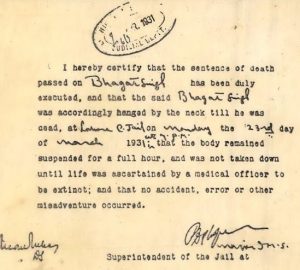 1931
I hereby certify that the sentence of death
passed on Bhagat Singh has been duly
executed, and that the said Bhagat Singh
was accordingly hanged by the neck till he was
dead, at Lahore C. Jail on Monday the 23rd day
of March 1931 at 7 P.M. that the body remained
suspended for a full hour, and was not taken down
until life was ascertained by a medical officer to
be extinct; and that no accident, error or other
misadventure occurred.
Major I.M.S.
Superintendent of the Jail at